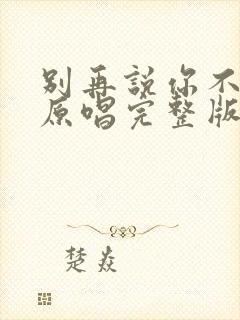 别再説你不
原唱完整版
楚焱